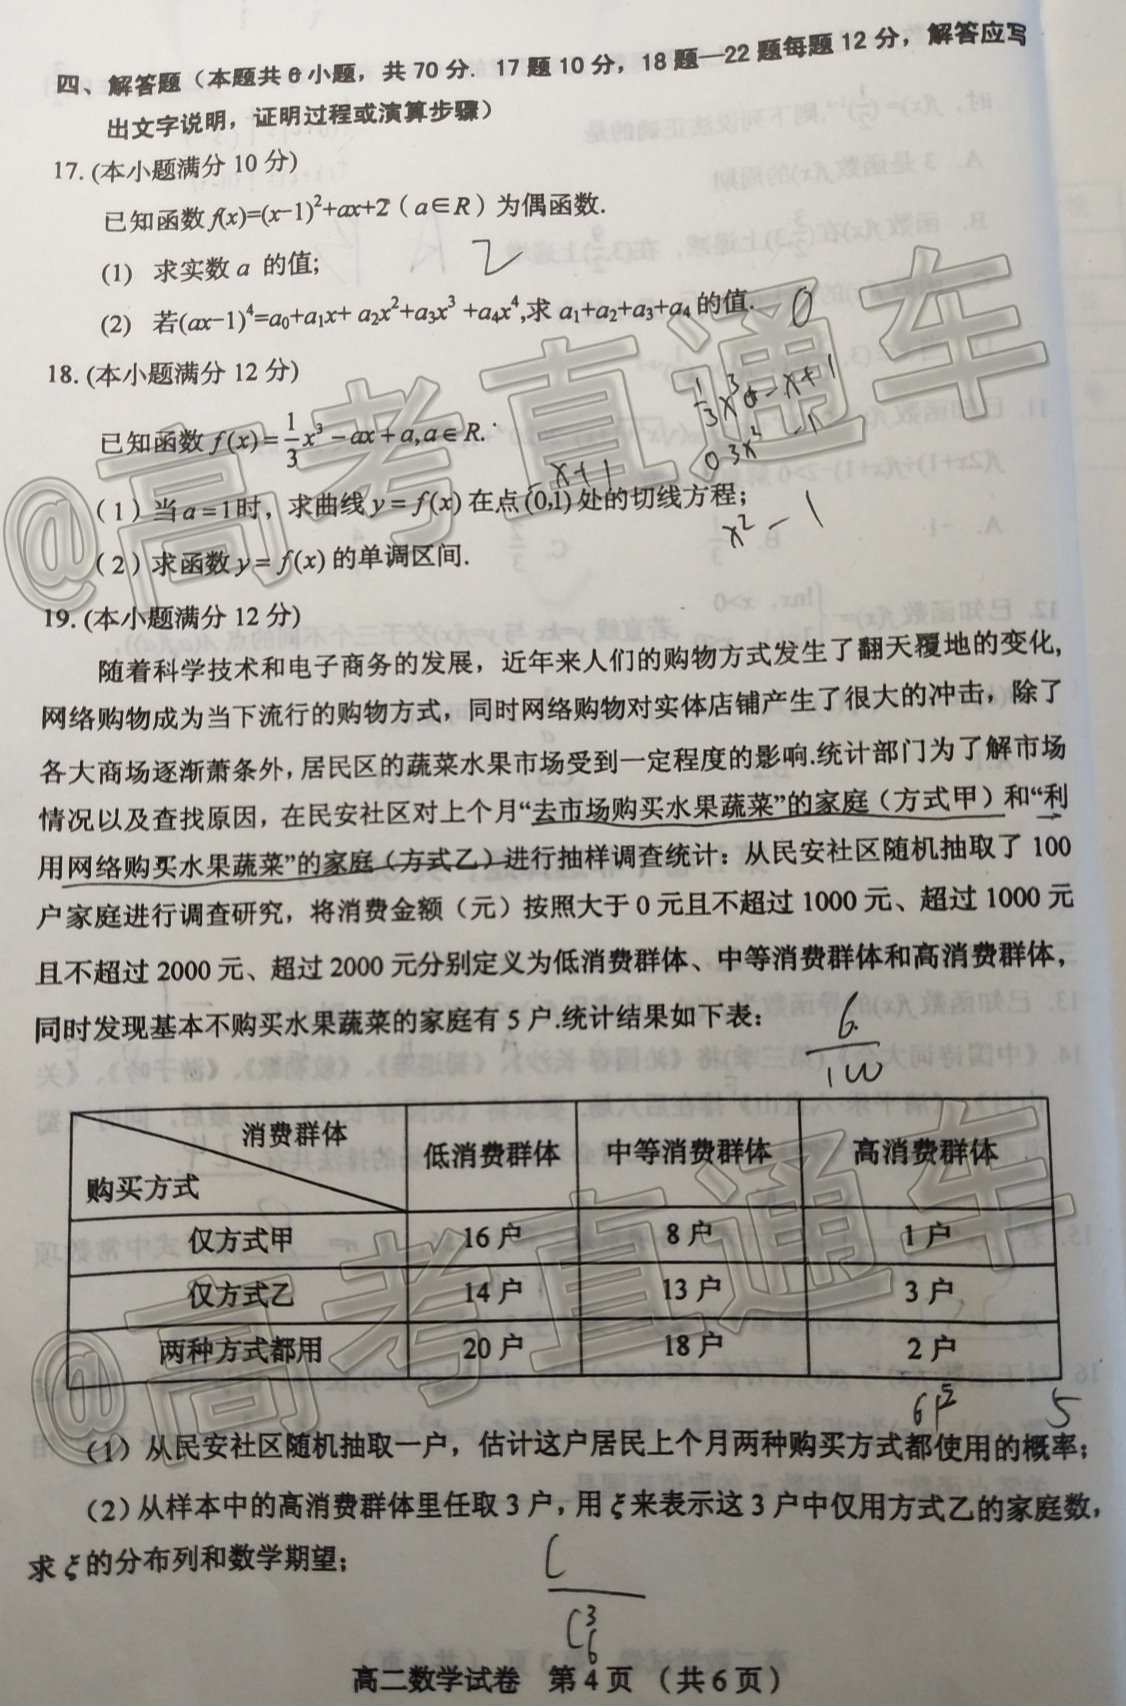 四、解答题（本题共6小题，共70分．17题10分，18题—22题每题12分，解答应写
出文字说明，证明过程或演算步骤）
17.(本小题满分10分)
已知函数f(x)=(x−1)²+ax+2（a∈R）为偶函数.
(1) 求实数a 的值;
2
(2) 若(ax−1)⁴=a₀+a₁x+ a₂x²+a₃x³ +a₄x⁴,求 a₁+a₂+a₃+a₄的值.
0
18.(本小题满分12分)
已知函数 f(x)=1/3x³−ax+a,a∈R.
−x+1
x²−1
（1）当a=1时，求曲线y=f(x)在点(0,1)处的切线方程；
（2）求函数y=f(x)的单调区间.
19.(本小题满分12分)
随着科学技术和电子商务的发展，近年来人们的购物方式发生了翻天覆地的变化,
网络购物成为当下流行的购物方式，同时网络购物对实体店铺产生了很大的冲击，除了
各大商场逐渐萧条外,居民区的蔬菜水果市场受到一定程度的影响.统计部门为了解市场
情况以及查找原因，在民安社区对上个月“去市场购买水果蔬菜”的家庭（方式甲）和“利
用网络购买水果蔬菜”的家庭（方式乙）进行抽样调查统计：从民安社区随机抽取了100
户家庭进行调查研究，将消费金额（元）按照大于0元且不超过1000元、超过1000元
且不超过2000元、超过2000元分别定义为低消费群体、中等消费群体和高消费群体，
同时发现基本不购买水果蔬菜的家庭有5户.统计结果如下表：
6/100
消费群体
购买方式 低消费群体 中等消费群体 高消费群体
仅方式甲 16户 8户 1户
仅方式乙 14户 13户 3户
两种方式都用 20户 18户 2户
6户 5
（1）从民安社区随机抽取一户，估计这户居民上个月两种购买方式都使用的概率；
（2）从样本中的高消费群体里任取3户，用ξ来表示这3户中仅用方式乙的家庭数，
求ξ的分布列和数学期望；
C/C₆³
高二数学试卷 第4页 （共6页）
@高考直通车
@高考直通车